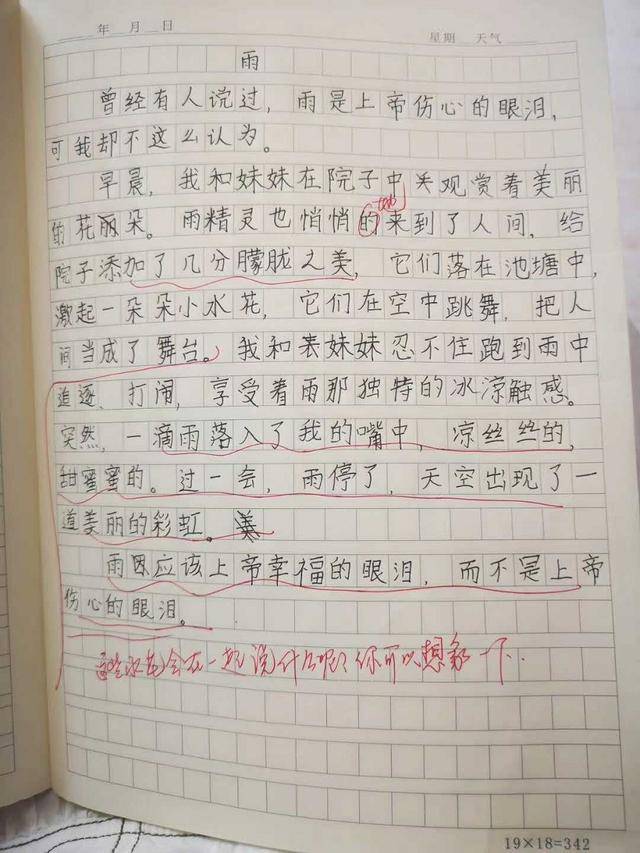 年 月 日 星期 天气
雨
曾经有人说过，雨是上帝伤心的眼泪，
可我却不这么认为。
早晨，我和妹妹在院子中观赏着美丽
的花朵。雨精灵也悄悄的来到了人间，给
院子添加了几分朦胧之美，它们落在池塘中，
激起一朵朵小水花，它们在空中跳舞，把人
间当成了舞台。我和表妹妹忍不住跑到雨中
追逐、打闹，享受着雨那独特的冰凉触感。
突然，一滴雨落入了我的嘴中，凉丝丝的，
甜蜜蜜的。过一会，雨停了，天空出现了一
道美丽的彩虹。
雨应该上帝幸福的眼泪，而不是上帝
伤心的眼泪。
这些水花会在一起说什么呢？你可以想象一下.
19×18=342